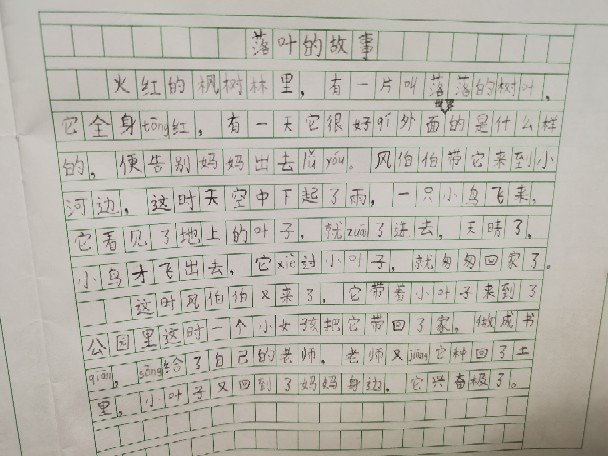 落叶的故事
火红的枫树林里，有一片叫落落的树叶，
它全身tōng红，有一天它很好qí外面世界的是什么样
的，便告别妈妈出去lǚ yóu。风伯伯带它来到小
河边，这时天空中下起了雨，一只小鸟飞来，
它看见了地上的叶子，就zuān了进去，天晴了，
小鸟才飞出去，它xiè过小叶子，就匆匆回家了。
这时风伯伯又来了，它带着小叶子来到了
公园里这时一个小女孩把它带回了家，做成书
qiān，sòng给了自己的老师，老师又jiāng它种回了土
里。小叶子又回到了妈妈身边，它兴奋极了。